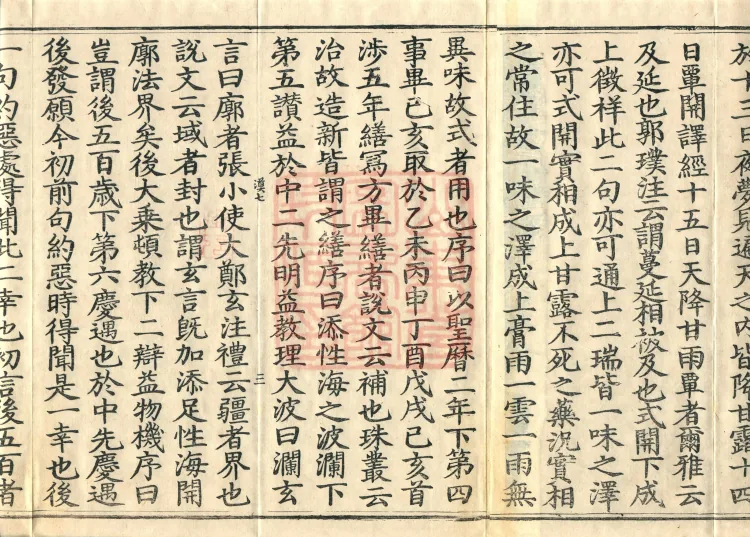 於十三日夜夢見遍天之內皆降甘露十四
日覃開譯經十五日天降甘雨覃者爾雅云
及延也郭璞注云謂蔓延相被及也式開下成
上徵祥此二句亦可通上二瑞皆一味之澤
亦可式開實相成上甘露不死之藥況實相
之常住故一味之澤成上膏雨一雲一雨無
異味故式者用也序曰以聖曆二年下第四
事畢己亥取於乙未丙申丁酉戊戌己亥首
涉五年繕寫方畢繕者說文云補也珠叢云
治故造新皆謂之繕序曰添性海之波瀾下
第五讚益於中二先明益教理大波曰瀾玄
漢七 三
言曰廓者張小使大鄭玄注禮云疆者界也
說文云域者封也謂玄言既加添足性海開
廓法界矣後大乘頓教下二辯益物機序曰
豈謂後五百歲下第六慶遇也於中先慶遇
後發願今初前句約惡時得聞是一幸也後
一句約惡處得聞此二幸也初言後五百者